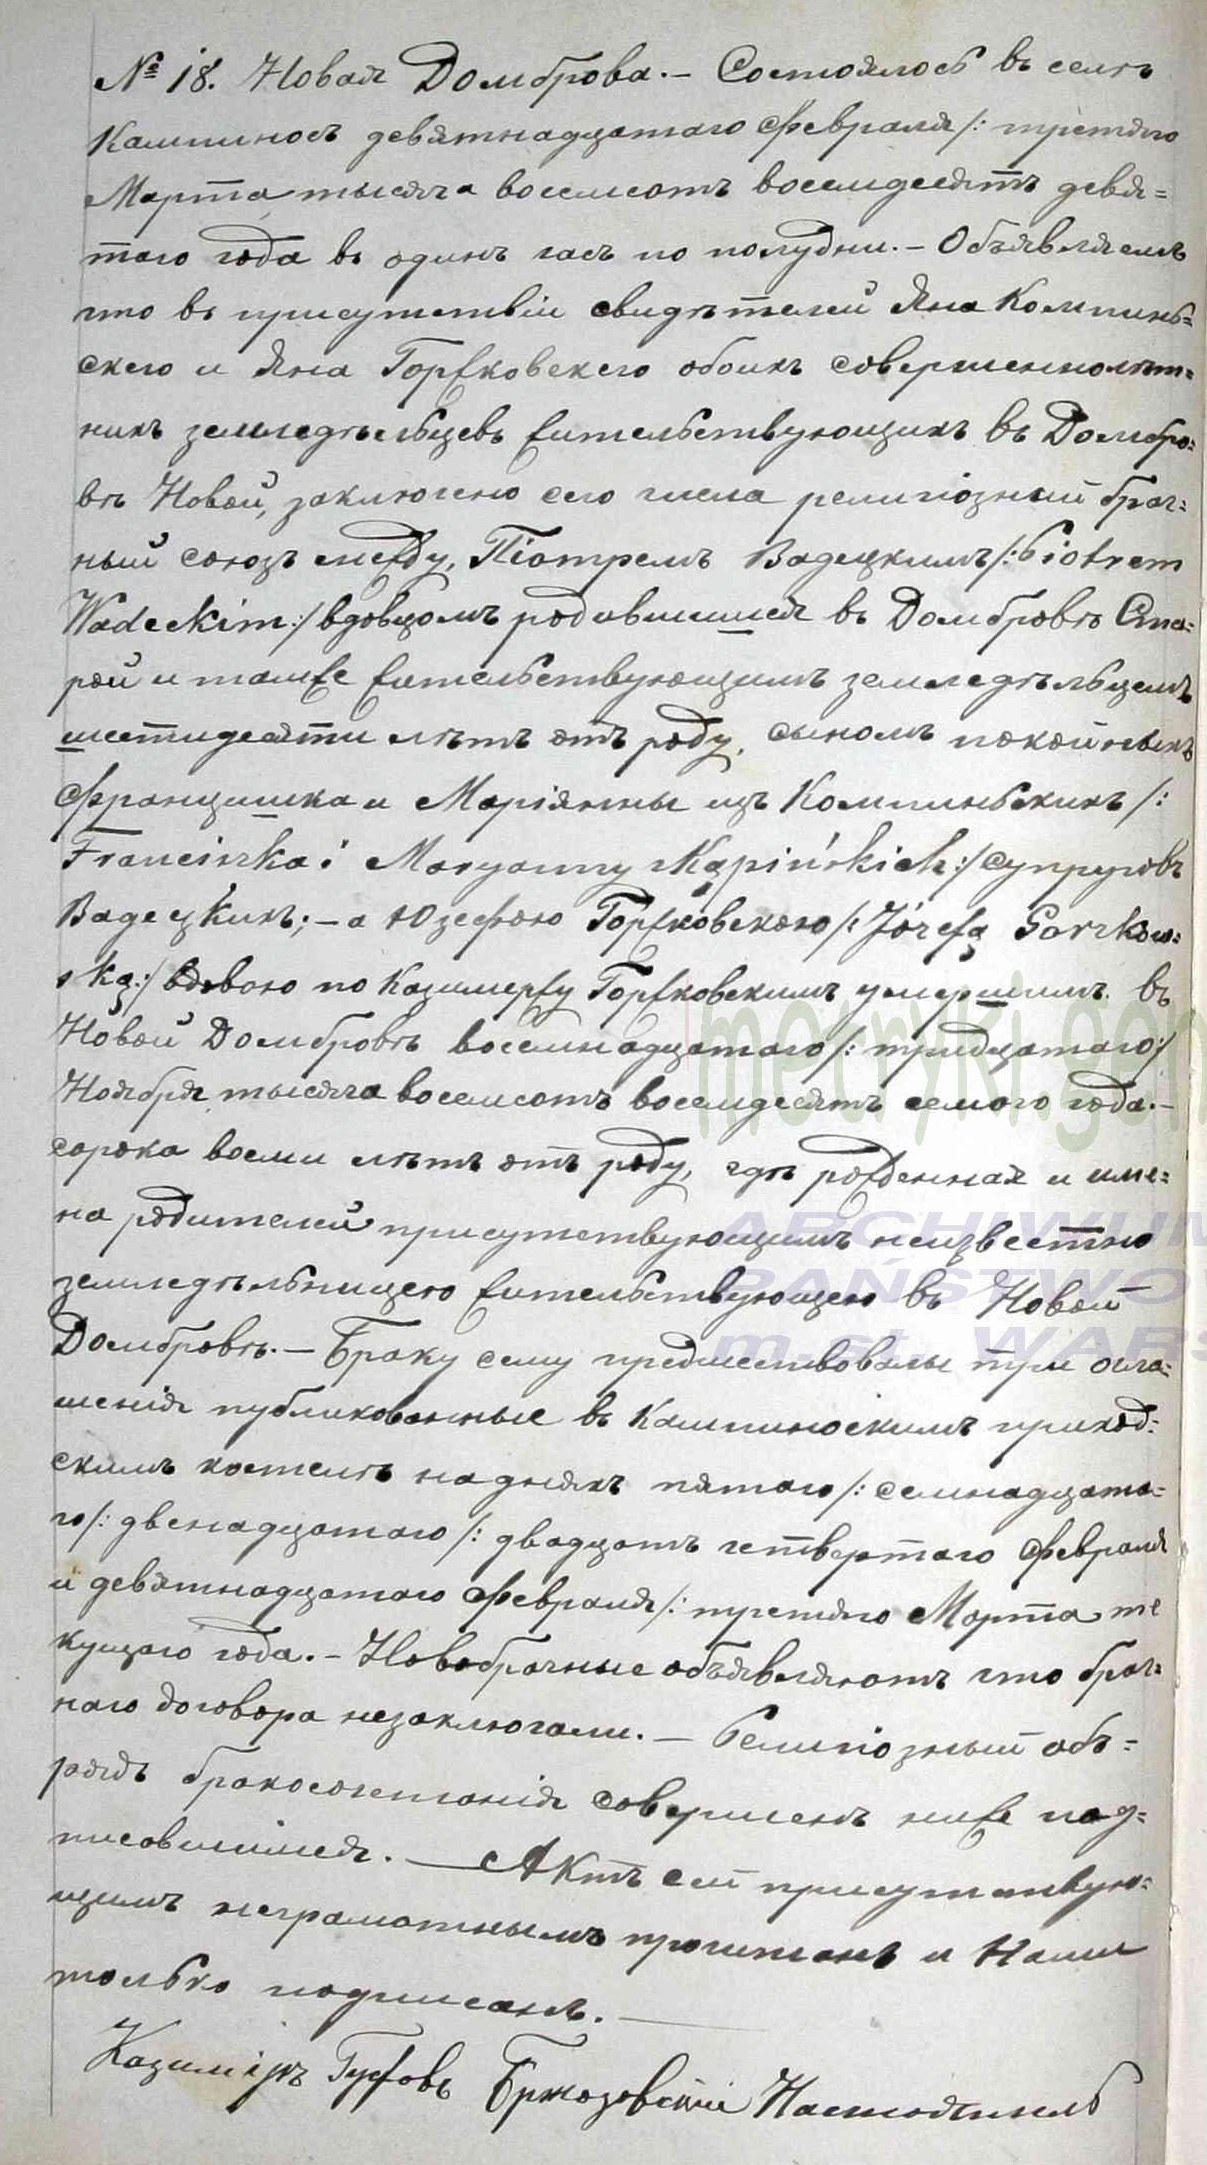 № 18. Новая Домброва. — Состоялось въ селѣ
Кампиносъ девятнадцатаго Февраля /: третяго
Марта тысяча восемсотъ восемдесятъ девя=
таго года въ одинъ часъ по полудни. — Объявляемъ
что въ присутствіи свидѣтелей Яна Компинь=
скего и Яна Горжковскего обоихъ совершеннолѣт=
нихъ земледѣльцевъ жительствующихъ въ Домбро=
вѣ Новой, заключено сего числа религіозный брач=
ный союзъ между, Піотремъ Вадецкимъ /: Piotrem
Wadeckim :/ вдовцомъ родившимся въ Домбровѣ Ста=
рой и тамже жительствующимъ земледѣльцемъ
шестидесяти лѣтъ отъ роду, сыномъ покойныхъ
Францишка и Маріянны изъ Компиньскихъ /:
Franciszka i Maryanny z Kąpińskich :/ супруговъ
Вадецкихъ; — а Юзефою Горжковскою /: Józefą Gorzkow=
ską :/ вдовою по Казимержу Горжковскимъ умершимъ въ
Новой Домбровѣ восемнадцатаго /: тридцатаго :/
Ноября тысяча восемсотъ восемдесятъ семого года. —
сорока восми лѣтъ отъ роду, гдѣ рожденная и име=
на родителей присутствующимъ неизвестно
земледѣльницею жительствующею въ Новой
Домбровѣ. — Браку сему предшествовалы три огла=
шенія публикованные въ Кампиноскимъ приход=
скимъ костелѣ на дняхъ пятаго /: семнадцата=
го /: двенадцатаго /: двадцатъ четвертаго Февраля
и девятнадцатаго Февраля /: третяго Марта те
кущаго года. — Новобрачные объявляютъ что брач=
наго договора незаключали. — Религіозный объ=
рядъ бракосочетанія совершенъ ниже под=
писавшимся. — Актъ сей присутствую=
щимъ неграмотнымъ прочитанъ и Нами
только подписанъ. —
Казиміръ Бржозовскій Настоятель
metryki.gen
ARCHIWUM
PAŃSTWO
m.st. WARS